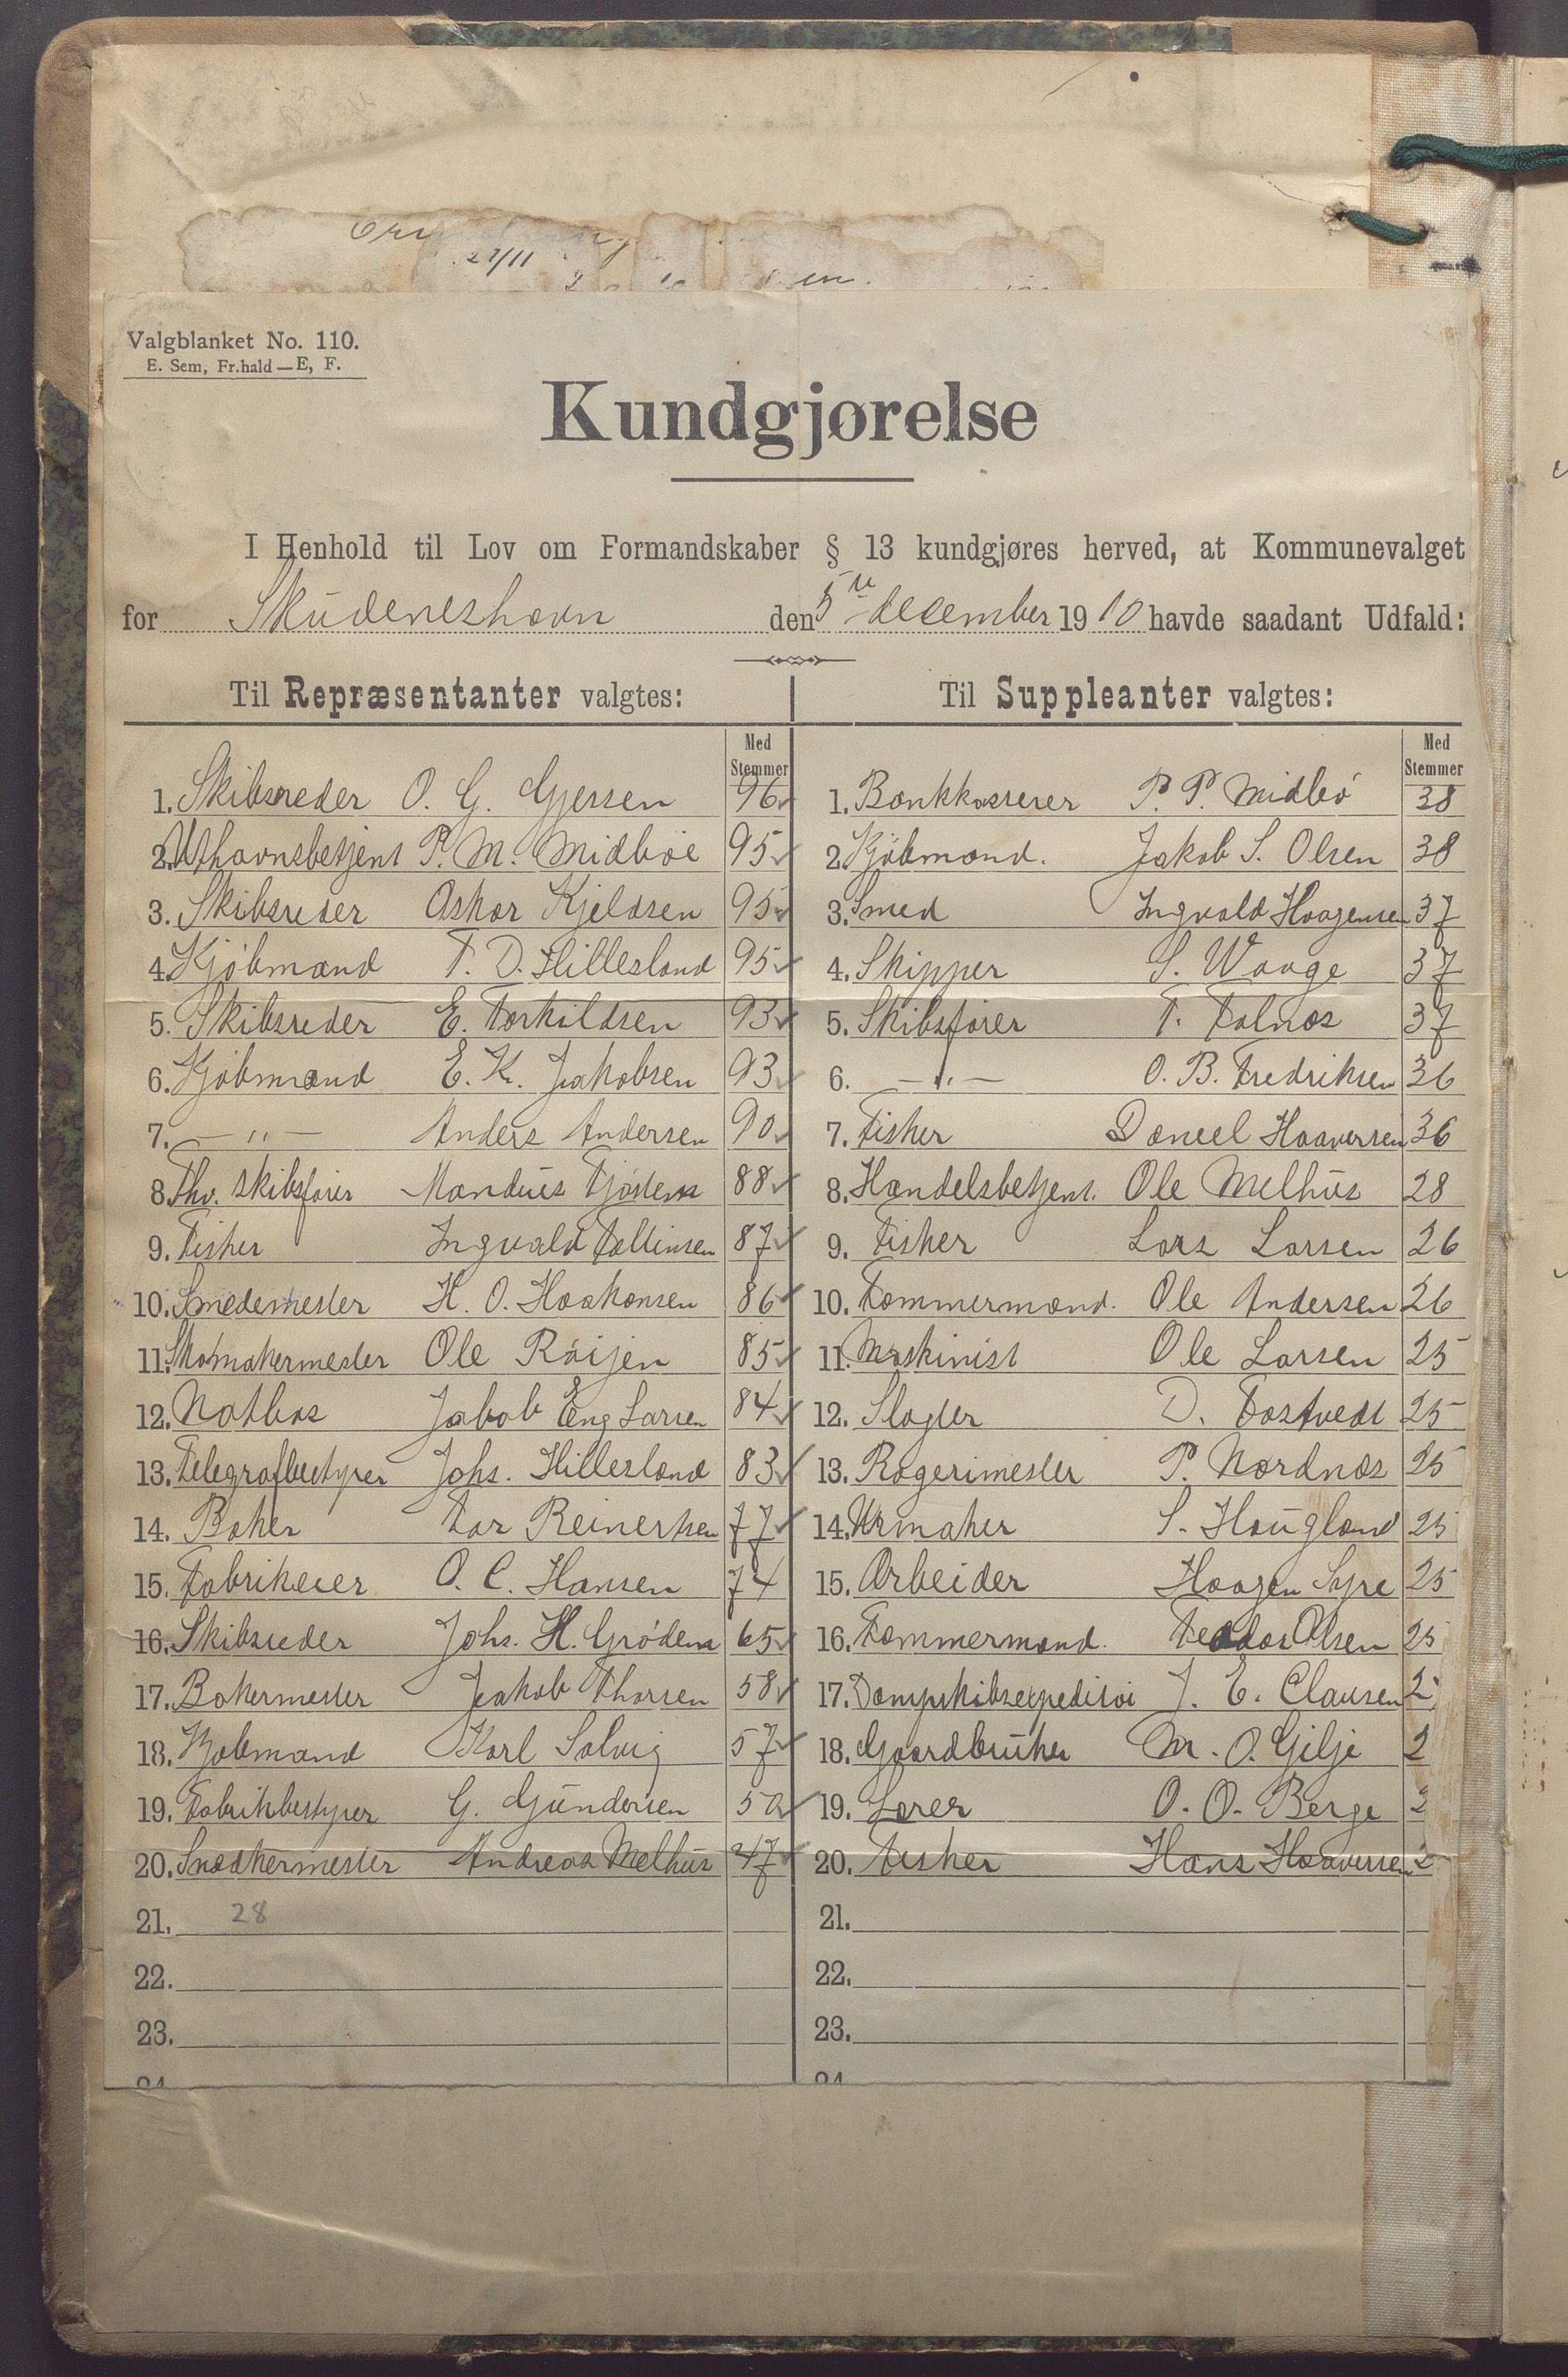 27/11
Valgblanket No. 110.
E. Sem, Fr.hald — E, F.
Kundgjørelse
I Henhold til Lov om Formandskaber § 13 kundgjøres herved, at Kommunevalget
for Skudeneshavn den 5te desember 1910 havde saadant Udfald:
Til Repræsentanter valgtes:
Med Stemmer
1. Skibsreder O. G. Gjessen 96
2. Uthavnsbetjent P. M. Midbøe 95
3. Skibsreder Askar Kjeldsen 95
4. Kjöbmand T. D. Hillesland 95
5. Skibsreder E. Torkildsen 93
6. Kjöbmand E. K. Jakobsen 93
7. — " — Anders Andersen 90
8. Fhv. skibsfører Mandius 88
9. Fisker Ingvald Tollinsen 87
10. Smedemester H. O. Haakonsen 86
11. Skomakermester Ole Röijen 85
12. Notbas Jakob Eng Larsen 84
13. Telegrafbestyrer Johs. Hillesland 83
14. Baker Tor Reinertsen 77
15. Fabrikeier O. C. Hansen 74
16. Skibsreder Johs. H. Grødem 65
17. Bakermester Jakob Thorsen 58
18. Kjøbmand Karl Solvig 57
19. Fabrikbestyrer G. Gundersen 50
20. Snedkermester Andreas Melhus 47
21. 28
22.
23.
24
Til Suppleanter valgtes:
Med Stemmer
1. Bankkasserer P. P. Midbö 38
2. Kjöbmand. Jakob S. Olsen 38
3. Smed Ingvald Haagensen 37
4. Skipper S. Waage 37
5. Skibsfører T. Falnes 37
6. — " — O. B. Fredriksen 36
7. Fisker Daneel Haaversen 36
8. Handelsbetjent. Ole Melhus 28
9. Fisker Lars Larsen 26
10. Tømmermand. Ole Andersen 26
11. Maskinist Ole Larsen 25
12. Slagter D. Tostvedt 25
13. Røgerimester P. Nordnes 25
14. Urmaker S. Haugland 25
15. Arbeider Haagen Syre 25
16. Tømmermand. Teodor Olsen 25
17. Dampskibsexpeditør J. E. Clausen 2
18. Gaardbruker M. O. Gilje 2
19. Lærer O. O. Berge 2
20. Fisker Hans Haaversen 2
21.
22.
23.
24